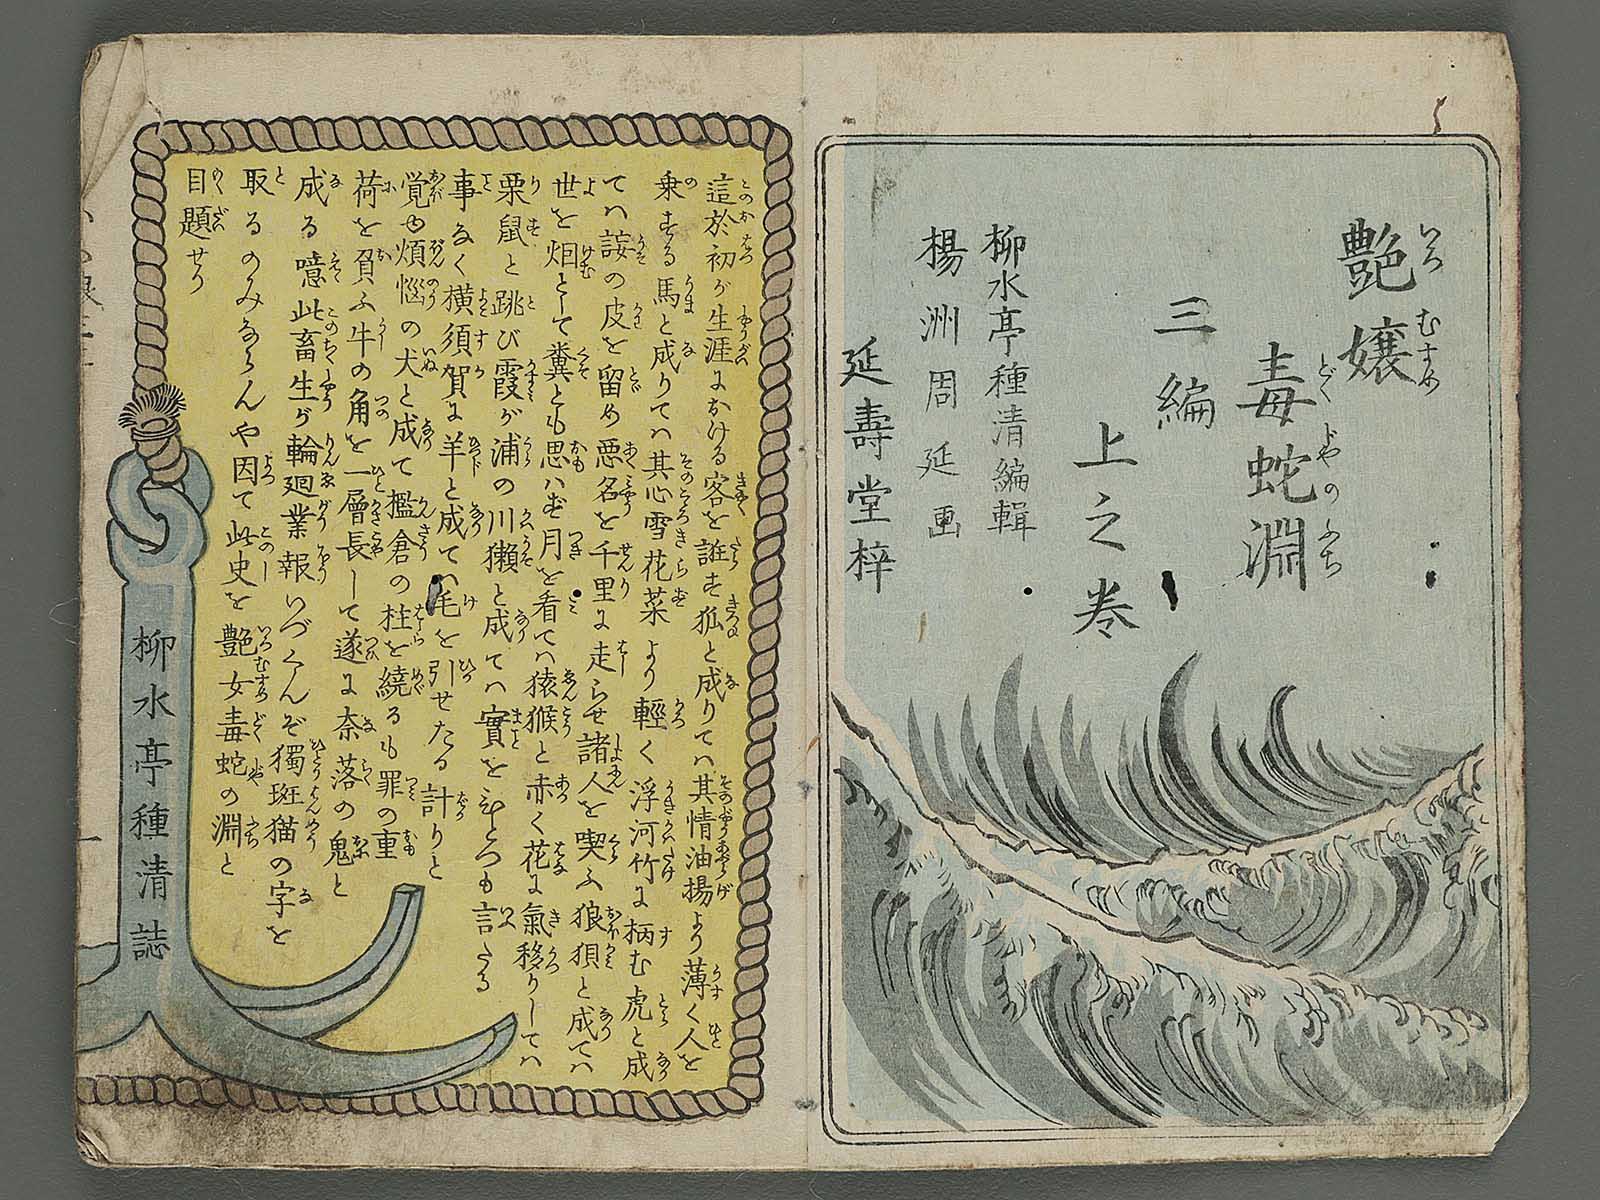 艶嬢
毒蛇淵
三編
上之巻
柳水亭種清編輯
楊洲周延画
延壽堂梓
這於初が生涯における客を誑す狐と成りてハ其情油揚より薄く人を
乗する馬と成りてハ其心雪花菜より輕く浮河竹に柄む虎と成
てハ𫍯の皮を留め悪名を千里に走らせ諸人を喫ふ狼狽と成てハ
世を烟として糞とも思ハず月を看てハ猿猴と赤く花に氣移りしてハ
栗鼠と跳び霞が浦の川獺と成てハ實をひとつも言たる
事なく横須賀に羊と成てハ毛を引せたる計りと
覚ゆ煩悩の犬と成て檻倉の柱を繞るも罪の重
荷を負ふ牛の角を一層長して遂に奈落の鬼と
成る噫此畜生が輪廻業報いづくんぞ獨斑猫の字を
取るのみならんや因て此史を艶女毒蛇の淵と
目題せり
柳水亭種清誌